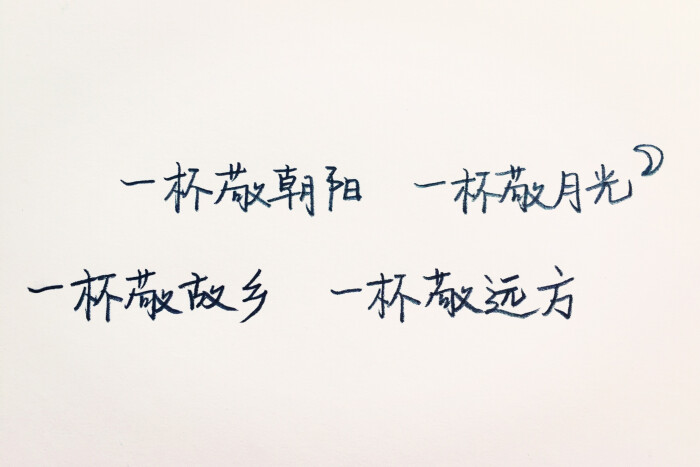 一杯敬朝阳 一杯敬月光
一杯敬故乡 一杯敬远方